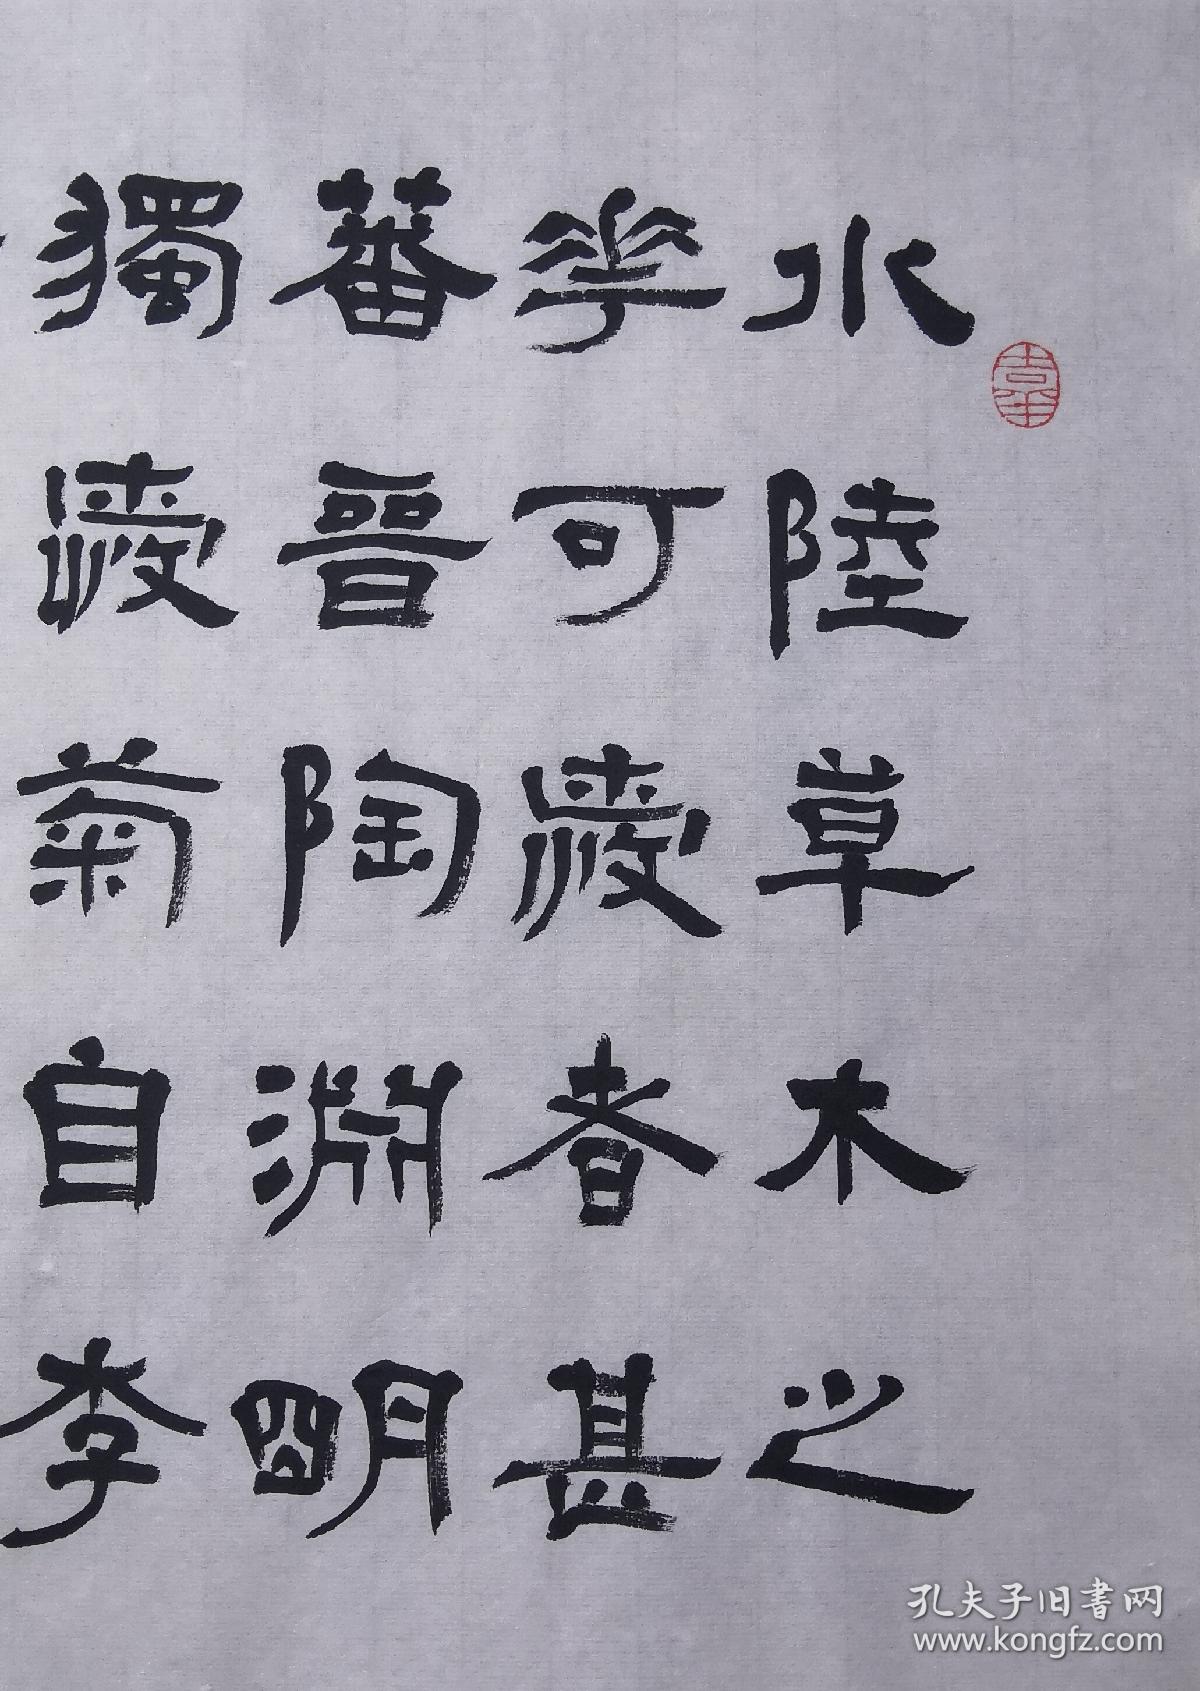 水陸草木之
華可愛者甚
蕃晉陶淵明
獨愛菊自李
孔夫子旧書网
www.kongfz.com